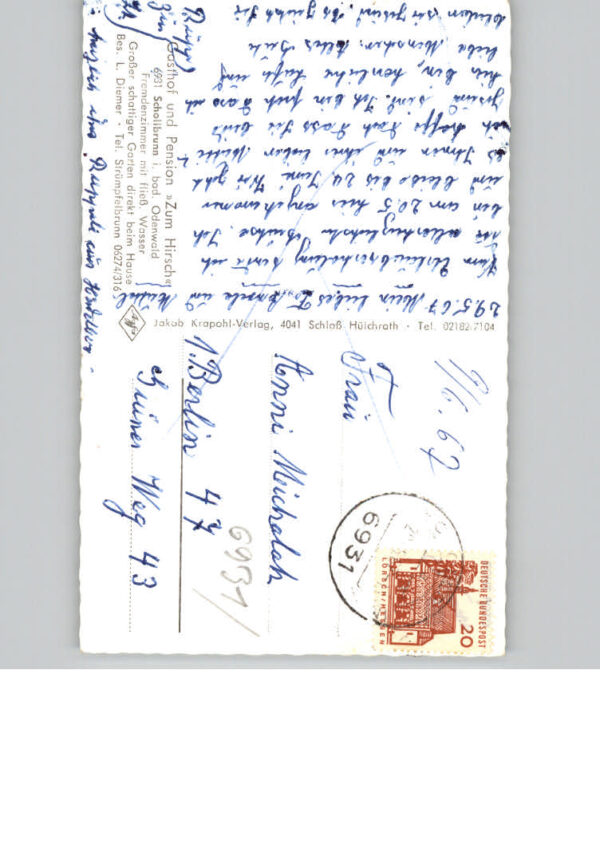 Gasthof und Pension »Zum Hirsche«
6931 Schollbrunn i. bad. Odenwald
Fremdenzimmer mit fließ. Wasser
Großer schattiger Garten direkt beim Hause
Bes. L. Diemer · Tel. Strümpfelbrunn 06274/316
29.5.67 Mein liebes und
Urlaubserholung sende ich
die allerherzlichsten Grüße. Ich
bin am 20.5 hier angekommen
und bleibe bis 24 Juni. Wie geht
es Ihnen und Ihrer lieben Mutti
ich hoffe doch dass Sie beide
gesund sind. Ich bin froh dass ich
hier bin, herrliche Luft und
liebe Menschen. Alles Gute
bleiben Sie gesund. Es grüßt Sie
herzlich Ihre aus
Jakob Krapohl-Verlag, 4041 Schloß Hülchrath · Tel. 02182/7104
9/6.67
Frau
Anni Michalak
1 Berlin 47
Grüner Weg 43
6931/
6931
DEUTSCHE BUNDESPOST
20
LORSCH/HESSEN